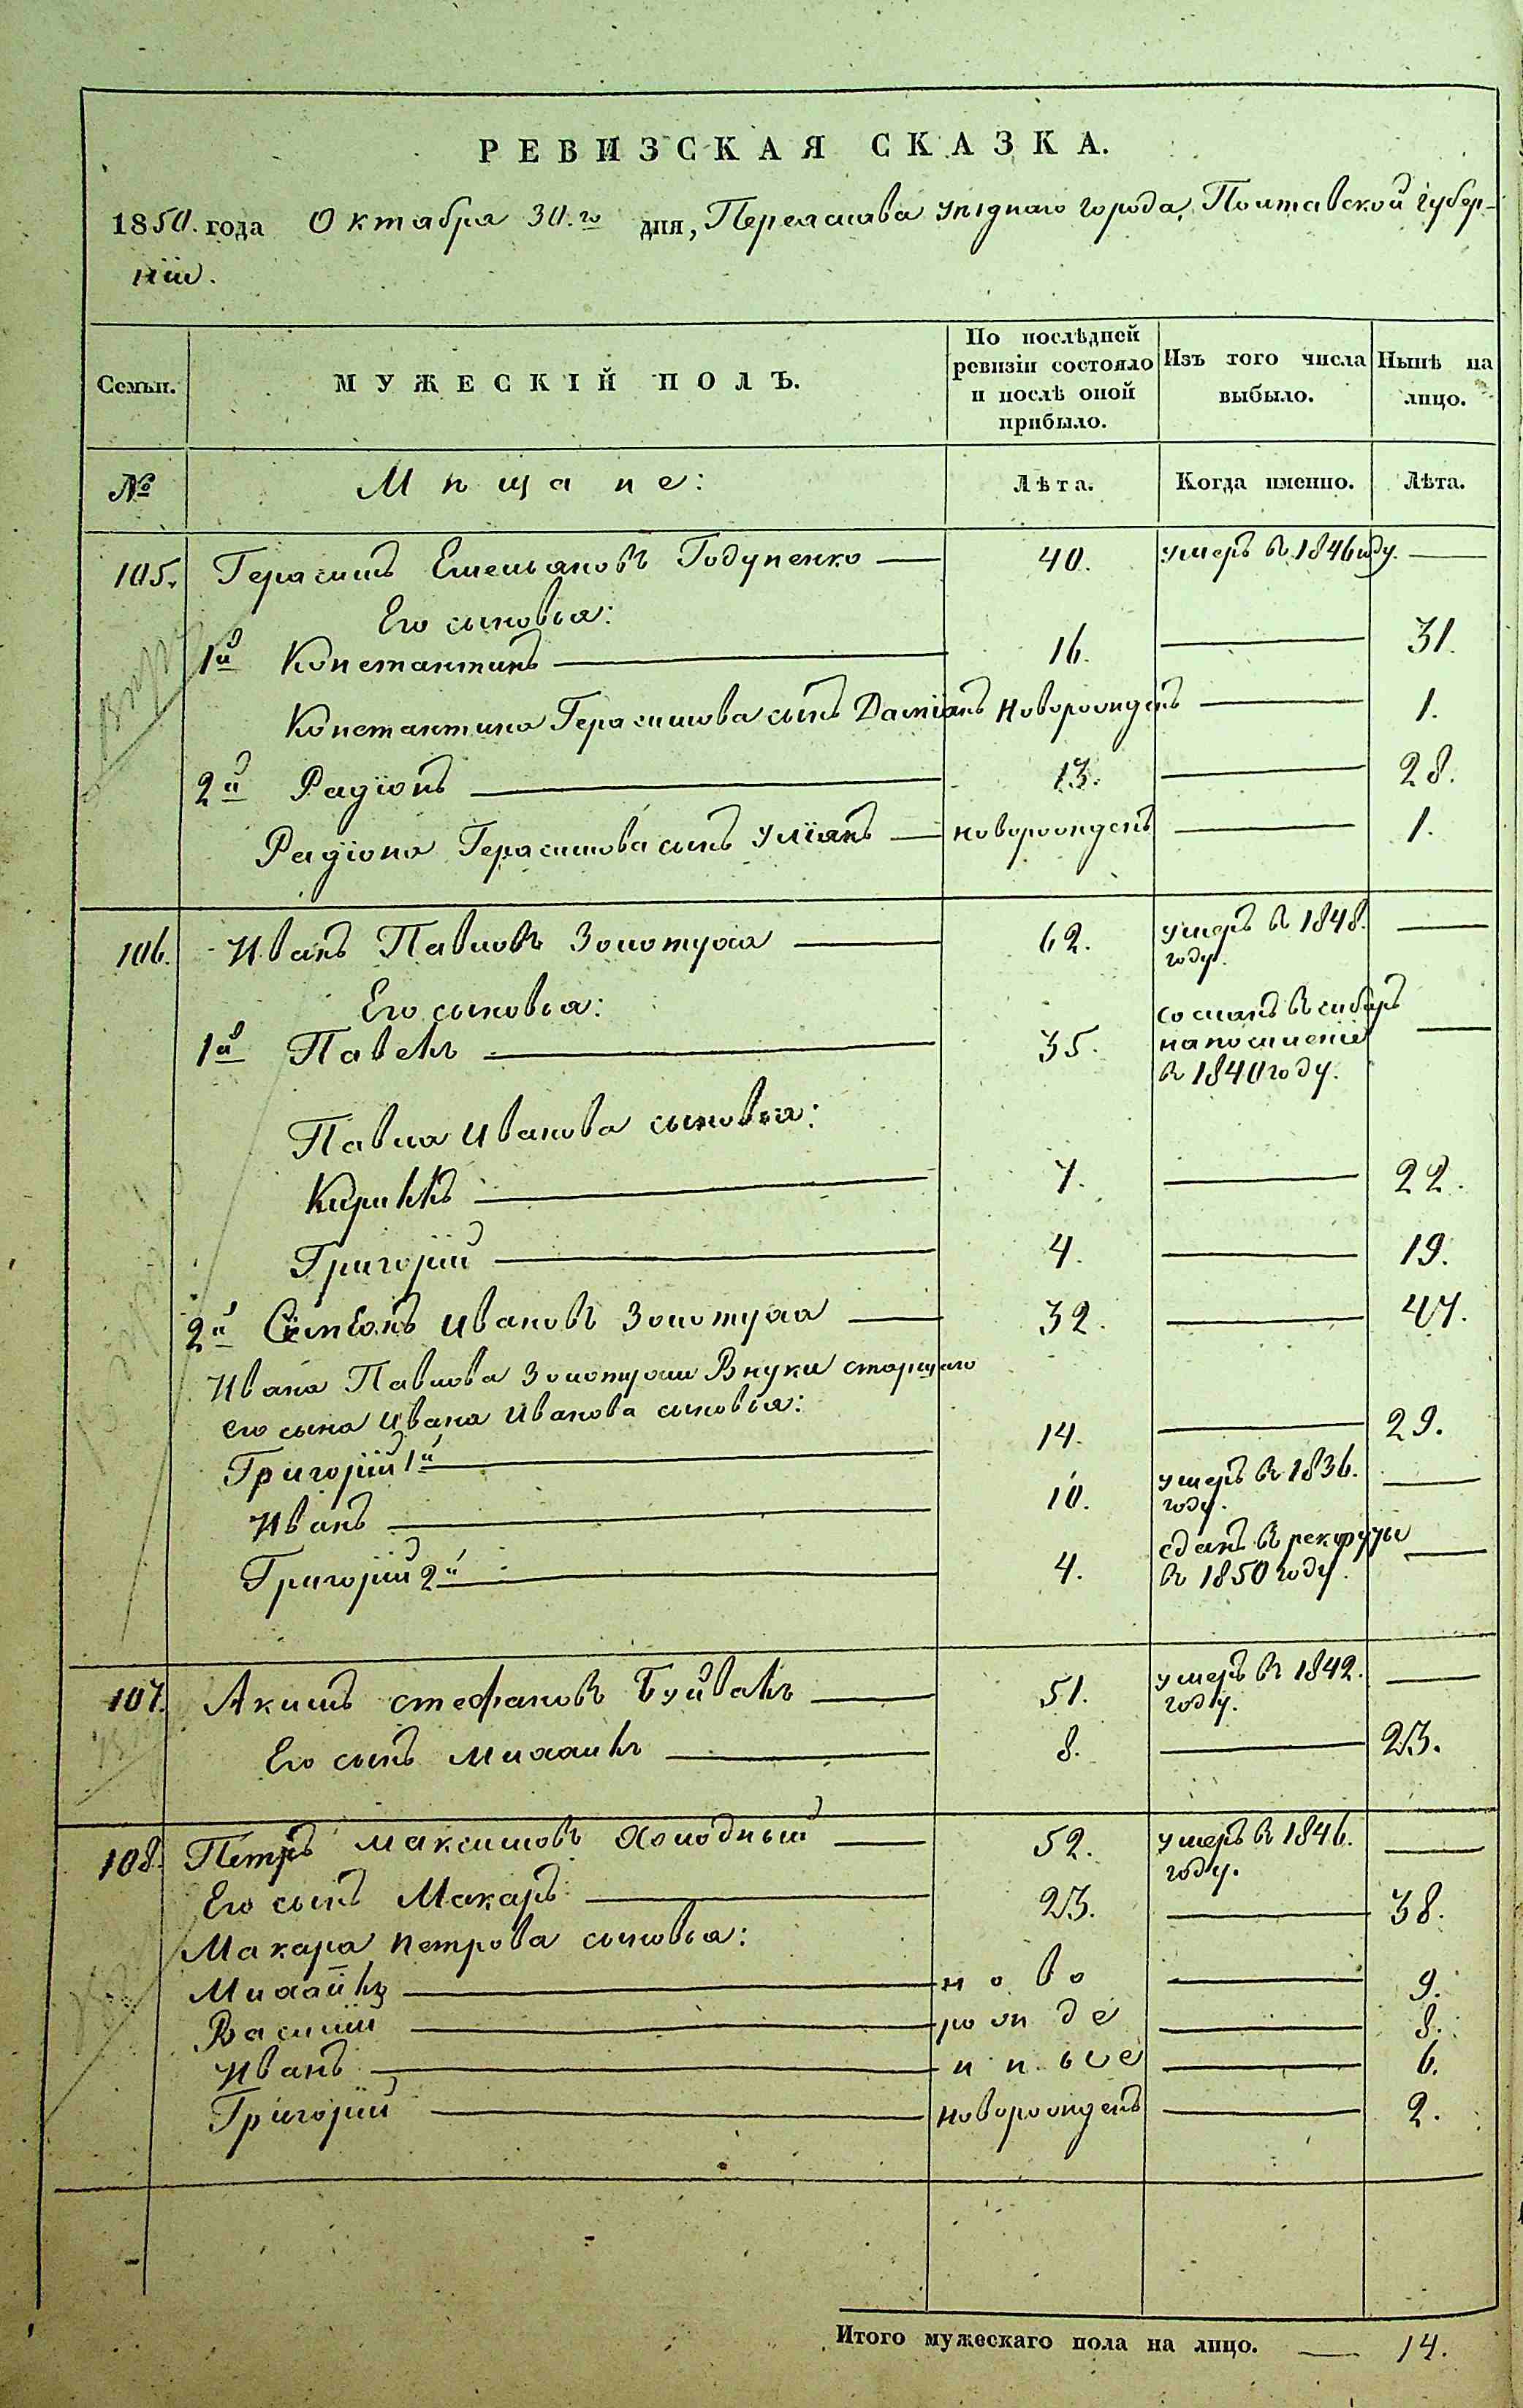 РЕВИЗСКАЯ СКАЗКА.
1850. года Октября 30.го дня, Переяслава уѣзднаго города, Полтавской губер-
нiи.
Семьи.
МУЖЕСКІЙ ПОЛЪ.
По послѣдней ревизіи состояло и послѣ оной прибыло.
Изъ того числа выбыло.
Нынѣ на лицо.
№
Мѣщане:
Лѣта.
Когда именно.
Лѣта.
105. Герасимъ Емельяновъ Годуненко — 40. умеръ въ 1846 году. —
Его сыновья:
1й Константинъ — 16. — 31.
Константина Герасимова сынъ Даміянъ новорожденъ — 1.
2й Радіонъ — 13. — 28.
Радіона Герасимова сынъ Уліянъ — новорожденъ — 1.
106. Иванъ Павловъ Золотуха — 62. умеръ въ 1848. году. —
Его сыновья:
1й Павелъ — 35. сосланъ въ сибирь на поселеніе въ 1840 году. —
Павла Иванова сыновья:
Кирилъ — 7. — 22.
Григорій — 4. — 19.
2й Сѵмеонъ Ивановъ Золотуха — 32. — 47.
Ивана Павлова Золотухи Внуки старшаго
его сына Ивана Иванова сыновья:
Григорій 1й — 14. — 29.
Иванъ — 10. умеръ въ 1836. году. —
Григорій 2й — 4. сданъ въ рекруты въ 1850 году. —
107. Акимъ Стефановъ Буйвалъ — 51. умеръ въ 1842. году. —
Его сынъ Михаилъ — 8. — 23.
108. Петръ Максимовъ Холодный — 52. умеръ въ 1846. году. —
Его сынъ Макаръ — 23. — 38.
Макара Петрова сыновья:
Михаилъ — ново — 9.
Василій — рожде — 8.
Иванъ — нные — 6.
Григорій — новорожденъ — 2.
Итого мужескаго пола на лицо. — 14.